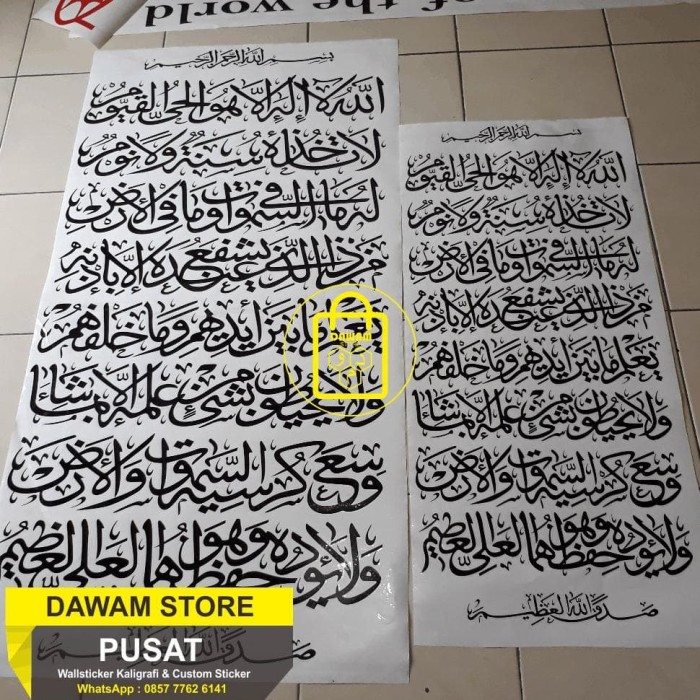 of the world
بسم الله الرحمن الرحيم
الله لا إله إلا هو الحي القيوم
لا تأخذه سنة ولا نوم
له ما في السموات وما في الأرض
من ذا الذي يشفع عنده إلا بإذنه
يعلم ما بين أيديهم وما خلفهم
ولا يحيطون بشيء من علمه إلا بما شاء
وسع كرسيه السموات والأرض
ولا يؤوده حفظهما وهو العلي العظيم
صدق الله العظيم
بسم الله الرحمن الرحيم
الله لا إله إلا هو الحي القيوم
لا تأخذه سنة ولا نوم
له ما في السموات وما في الأرض
من ذا الذي يشفع عنده إلا بإذنه
يعلم ما بين أيديهم وما خلفهم
ولا يحيطون بشيء من علمه إلا بما شاء
وسع كرسيه السموات والأرض
ولا يؤوده حفظهما وهو العلي العظيم
صدق الله العظيم
DAWAM
DAWAM STORE
PUSAT
Wallsticker Kaligrafi & Custom Sticker
WhatsApp : 0857 7762 6141